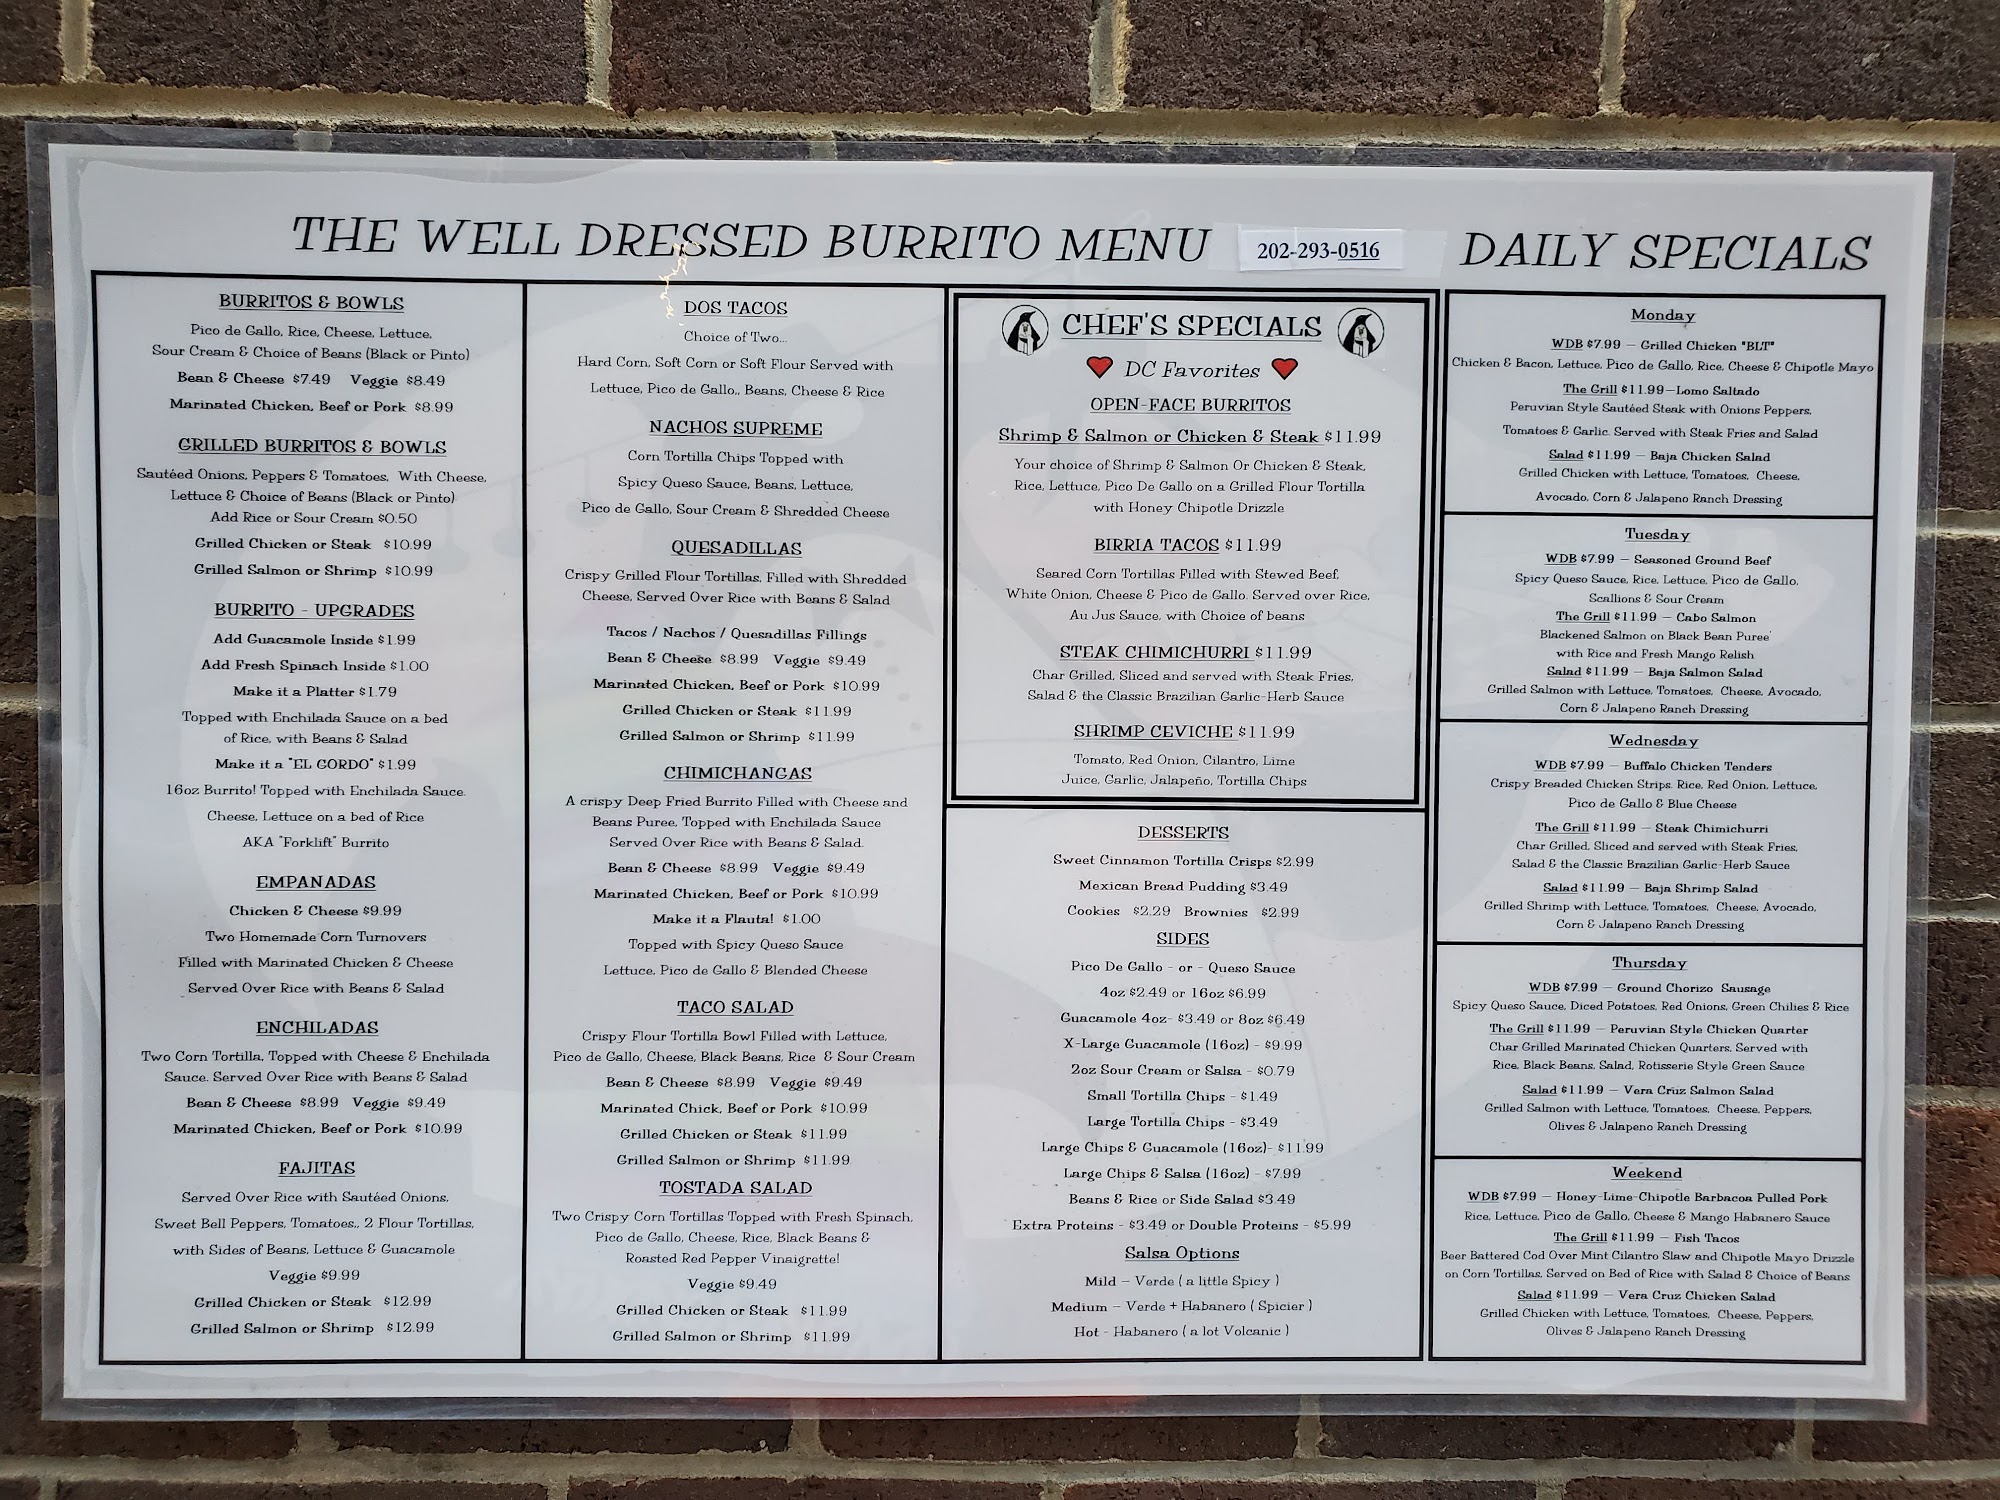 THE WELL DRESSED BURRITO MENU 202-293-0516 DAILY SPECIALS
BURRITOS & BOWLS
Pico de Gallo, Rice, Cheese, Lettuce,
Sour Cream & Choice of Beans (Black or Pinto)
Bean & Cheese $7.49 Veggie $8.49
Marinated Chicken, Beef or Pork $8.99
GRILLED BURRITOS & BOWLS
Sautéed Onions, Peppers & Tomatoes, With Cheese,
Lettuce & Choice of Beans (Black or Pinto)
Add Rice or Sour Cream $0.50
Grilled Chicken or Steak $10.99
Grilled Salmon or Shrimp $10.99
BURRITO - UPGRADES
Add Guacamole Inside $1.99
Add Fresh Spinach Inside $1.00
Make it a Platter $1.79
Topped with Enchilada Sauce on a bed
of Rice, with Beans & Salad
Make it a "EL GORDO" $1.99
16oz Burrito! Topped with Enchilada Sauce.
Cheese, Lettuce on a bed of Rice
AKA "Forklift" Burrito
EMPANADAS
Chicken & Cheese $9.99
Two Homemade Corn Turnovers
Filled with Marinated Chicken & Cheese
Served Over Rice with Beans & Salad
ENCHILADAS
Two Corn Tortilla, Topped with Cheese & Enchilada
Sauce. Served Over Rice with Beans & Salad
Bean & Cheese $8.99 Veggie $9.49
Marinated Chicken, Beef or Pork $10.99
FAJITAS
Served Over Rice with Sautéed Onions,
Sweet Bell Peppers, Tomatoes,, 2 Flour Tortillas,
with Sides of Beans, Lettuce & Guacamole
Veggie $9.99
Grilled Chicken or Steak $12.99
Grilled Salmon or Shrimp $12.99
DOS TACOS
Choice of Two...
Hard Corn, Soft Corn or Soft Flour Served with
Lettuce, Pico de Gallo,, Beans, Cheese & Rice
NACHOS SUPREME
Corn Tortilla Chips Topped with
Spicy Queso Sauce, Beans, Lettuce,
Pico de Gallo, Sour Cream & Shredded Cheese
QUESADILLAS
Crispy Grilled Flour Tortillas, Filled with Shredded
Cheese, Served Over Rice with Beans & Salad
Tacos / Nachos / Quesadillas Fillings
Bean & Cheese $8.99 Veggie $9.49
Marinated Chicken, Beef or Pork $10.99
Grilled Chicken or Steak $11.99
Grilled Salmon or Shrimp $11.99
CHIMICHANGAS
A crispy Deep Fried Burrito Filled with Cheese and
Beans Puree, Topped with Enchilada Sauce
Served Over Rice with Beans & Salad.
Bean & Cheese $8.99 Veggie $9.49
Marinated Chicken, Beef or Pork $10.99
Make it a Flauta! $1.00
Topped with Spicy Queso Sauce
Lettuce, Pico de Gallo & Blended Cheese
TACO SALAD
Crispy Flour Tortilla Bowl Filled with Lettuce,
Pico de Gallo, Cheese, Black Beans, Rice & Sour Cream
Bean & Cheese $8.99 Veggie $9.49
Marinated Chick, Beef or Pork $10.99
Grilled Chicken or Steak $11.99
Grilled Salmon or Shrimp $11.99
TOSTADA SALAD
Two Crispy Corn Tortillas Topped with Fresh Spinach,
Pico de Gallo, Cheese, Rice, Black Beans &
Roasted Red Pepper Vinaigrette!
Veggie $9.49
Grilled Chicken or Steak $11.99
Grilled Salmon or Shrimp $11.99
CHEF'S SPECIALS
DC Favorites
OPEN-FACE BURRITOS
Shrimp & Salmon or Chicken & Steak $11.99
Your choice of Shrimp & Salmon Or Chicken & Steak,
Rice, Lettuce, Pico De Gallo on a Grilled Flour Tortilla
with Honey Chipotle Drizzle
BIRRIA TACOS $11.99
Seared Corn Tortillas Filled with Stewed Beef,
White Onion, Cheese & Pico de Gallo. Served over Rice,
Au Jus Sauce, with Choice of beans
STEAK CHIMICHURRI $11.99
Char Grilled, Sliced and served with Steak Fries,
Salad & the Classic Brazilian Garlic-Herb Sauce
SHRIMP CEVICHE $11.99
Tomato, Red Onion, Cilantro, Lime
Juice, Garlic, Jalapeño, Tortilla Chips
DESSERTS
Sweet Cinnamon Tortilla Crisps $2.99
Mexican Bread Pudding $3.49
Cookies $2.29 Brownies $2.99
SIDES
Pico De Gallo - or - Queso Sauce
4oz $2.49 or 16oz $6.99
Guacamole 4oz- $3.49 or 8oz $6.49
X-Large Guacamole (16oz) - $9.99
2oz Sour Cream or Salsa - $0.79
Small Tortilla Chips - $1.49
Large Tortilla Chips - $3.49
Large Chips & Guacamole (16oz)- $11.99
Large Chips & Salsa (16oz) - $7.99
Beans & Rice or Side Salad $3.49
Extra Proteins - $3.49 or Double Proteins - $5.99
Salsa Options
Mild – Verde ( a little Spicy )
Medium – Verde + Habanero ( Spicier )
Hot - Habanero ( a lot Volcanic )
Monday
WDB $7.99 – Grilled Chicken "BLT"
Chicken & Bacon, Lettuce, Pico de Gallo, Rice, Cheese & Chipotle Mayo
The Grill $11.99–Lomo Saltado
Peruvian Style Sautéed Steak with Onions Peppers,
Tomatoes & Garlic. Served with Steak Fries and Salad
Salad $11.99 – Baja Chicken Salad
Grilled Chicken with Lettuce, Tomatoes, Cheese,
Avocado, Corn & Jalapeno Ranch Dressing
Tuesday
WDB $7.99 – Seasoned Ground Beef
Spicy Queso Sauce, Rice, Lettuce, Pico de Gallo,
Scallions & Sour Cream
The Grill $11.99 – Cabo Salmon
Blackened Salmon on Black Bean Puree'
with Rice and Fresh Mango Relish
Salad $11.99 – Baja Salmon Salad
Grilled Salmon with Lettuce, Tomatoes, Cheese, Avocado,
Corn & Jalapeno Ranch Dressing
Wednesday
WDB $7.99 – Buffalo Chicken Tenders
Crispy Breaded Chicken Strips, Rice, Red Onion, Lettuce,
Pico de Gallo & Blue Cheese
The Grill $11.99 – Steak Chimichurri
Char Grilled, Sliced and served with Steak Fries,
Salad & the Classic Brazilian Garlic-Herb Sauce
Salad $11.99 – Baja Shrimp Salad
Grilled Shrimp with Lettuce, Tomatoes, Cheese, Avocado,
Corn & Jalapeno Ranch Dressing
Thursday
WDB $7.99 – Ground Chorizo Sausage
Spicy Queso Sauce, Diced Potatoes, Red Onions, Green Chilies & Rice
The Grill $11.99 – Peruvian Style Chicken Quarter
Char Grilled Marinated Chicken Quarters, Served with
Rice, Black Beans, Salad, Rotisserie Style Green Sauce
Salad $11.99 – Vera Cruz Salmon Salad
Grilled Salmon with Lettuce, Tomatoes, Cheese, Peppers,
Olives & Jalapeno Ranch Dressing
Weekend
WDB $7.99 – Honey-Lime-Chipotle Barbacoa Pulled Pork
Rice, Lettuce, Pico de Gallo, Cheese & Mango Habanero Sauce
The Grill $11.99 – Fish Tacos
Beer Battered Cod Over Mint Cilantro Slaw and Chipotle Mayo Drizzle
on Corn Tortillas, Served on Bed of Rice with Salad & Choice of Beans
Salad $11.99 – Vera Cruz Chicken Salad
Grilled Chicken with Lettuce, Tomatoes, Cheese, Peppers,
Olives & Jalapeno Ranch Dressing